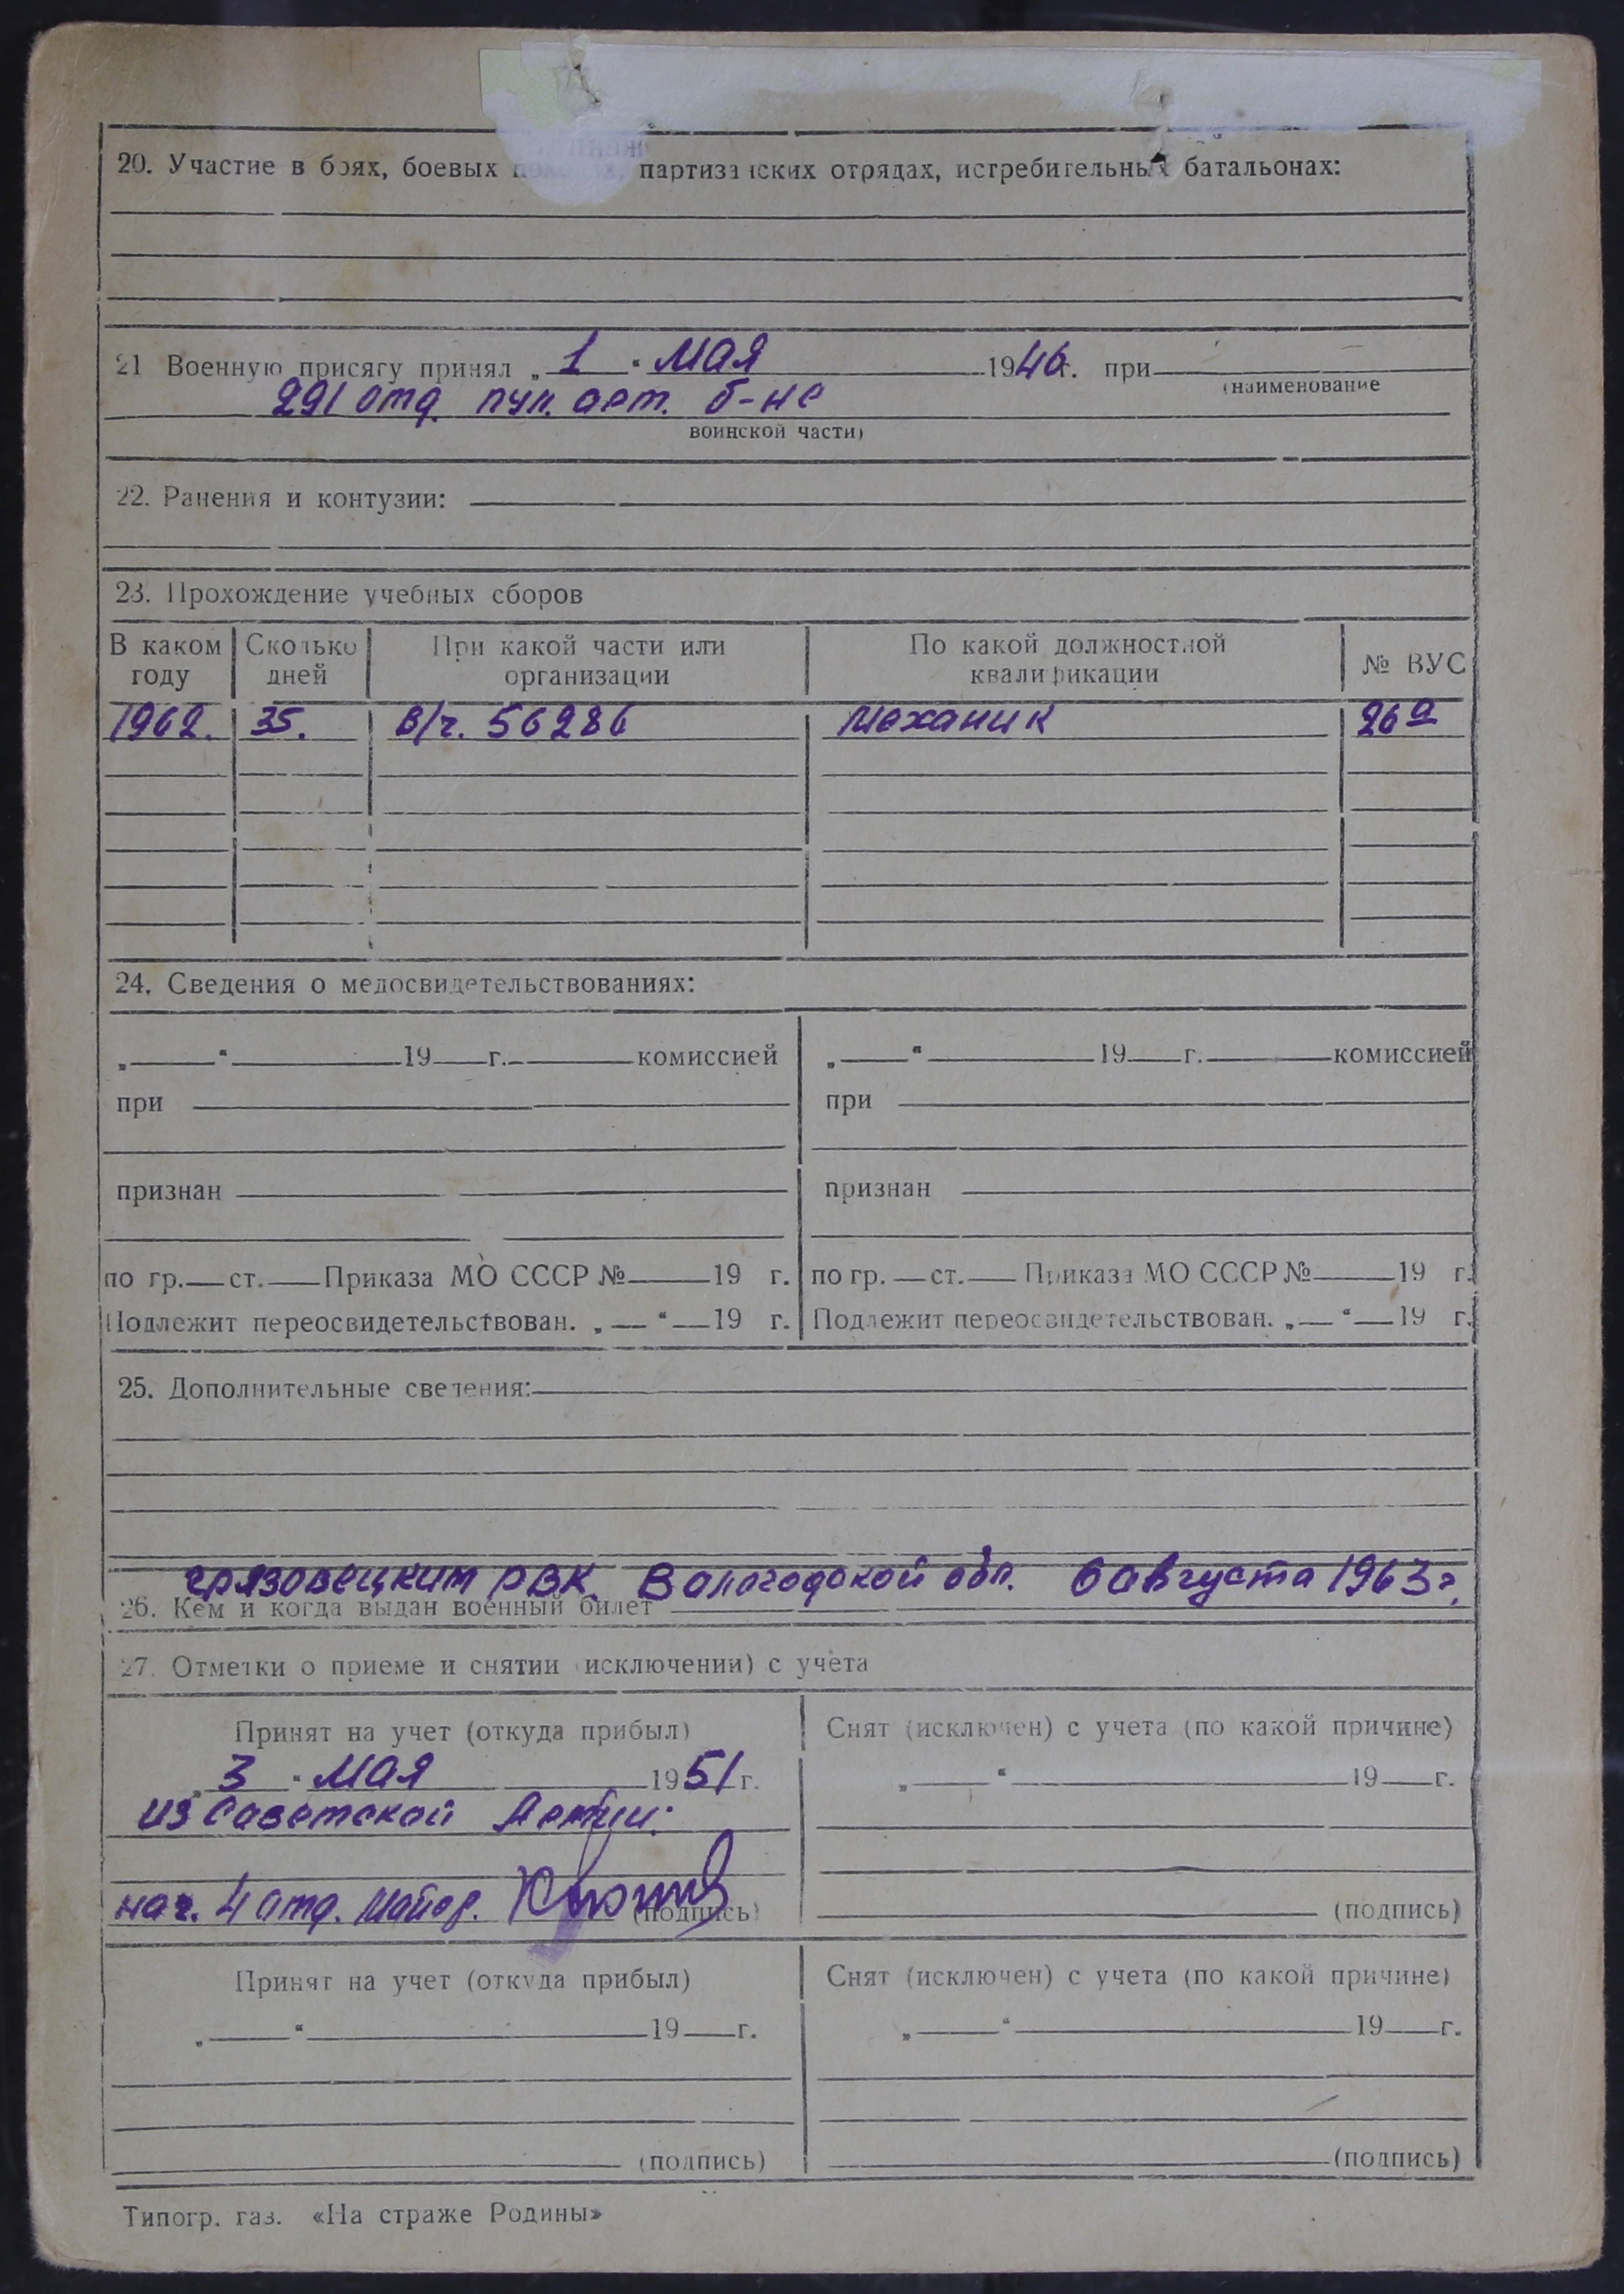 20. Участие в боях, боевых походах, партизанских отрядах, истребительных батальонах:
21 Военную присягу принял „ 1 “ Мая 1946 г. при
(наименование
291 отд. пул. арт. б-не
воинской части)
22. Ранения и контузии:
23. Прохождение учебных сборов
В каком году Сколько дней При какой части или организации По какой должностной квалификации № ВУС
1962. 35. в/ч. 56286 механик 26а
24. Сведения о медосвидетельствованиях:
„ “ 19 г. комиссией „ “ 19 г. комиссией
при при
признан признан
по гр. ст. Приказа МО СССР № 19 г. по гр. ст. Приказа МО СССР № 19 г.
Подлежит переосвидетельствован. „ “ 19 г. Подлежит переосвидетельствован. „ “ 19 г.
25. Дополнительные сведения:
Грязовецким РВК. Вологодской обл. 6 августа 1963 г.
26. Кем и когда выдан военный билет
27. Отметки о приеме и снятии (исключении) с учета
Принят на учет (откуда прибыл) Снят (исключен) с учета (по какой причине)
„ 3 “ Мая 1951 г. „ “ 19 г.
из Советской Армии.
нач. 4 отд. майор. (подпись) (подпись)
Принят на учет (откуда прибыл) Снят (исключен) с учета (по какой причине)
„ “ 19 г. „ “ 19 г.
(подпись) (подпись)
Типогр. газ. «На страже Родины»